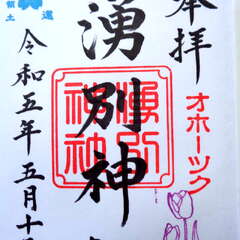 奉拝
オホーツク
湧別神
湧別
神社
令和五年五月十
還
土